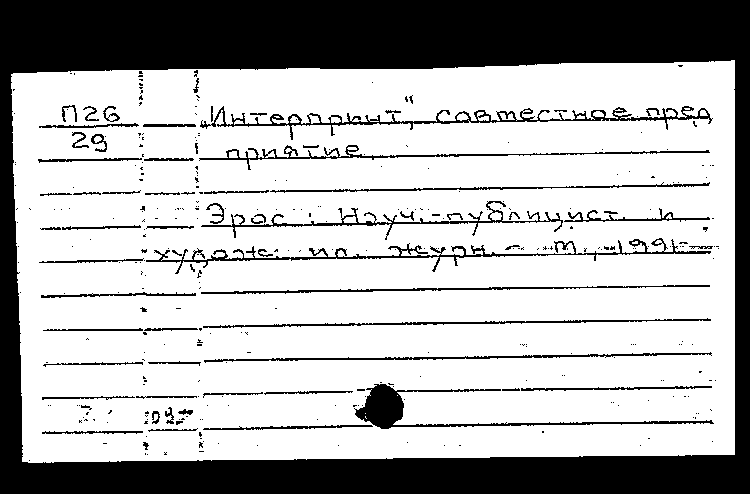 П26
29
„Интерпринт", совместное пред
приятие.
Эрос : Науч.-публицист. и
худож. ил. журн. - М., 1991-